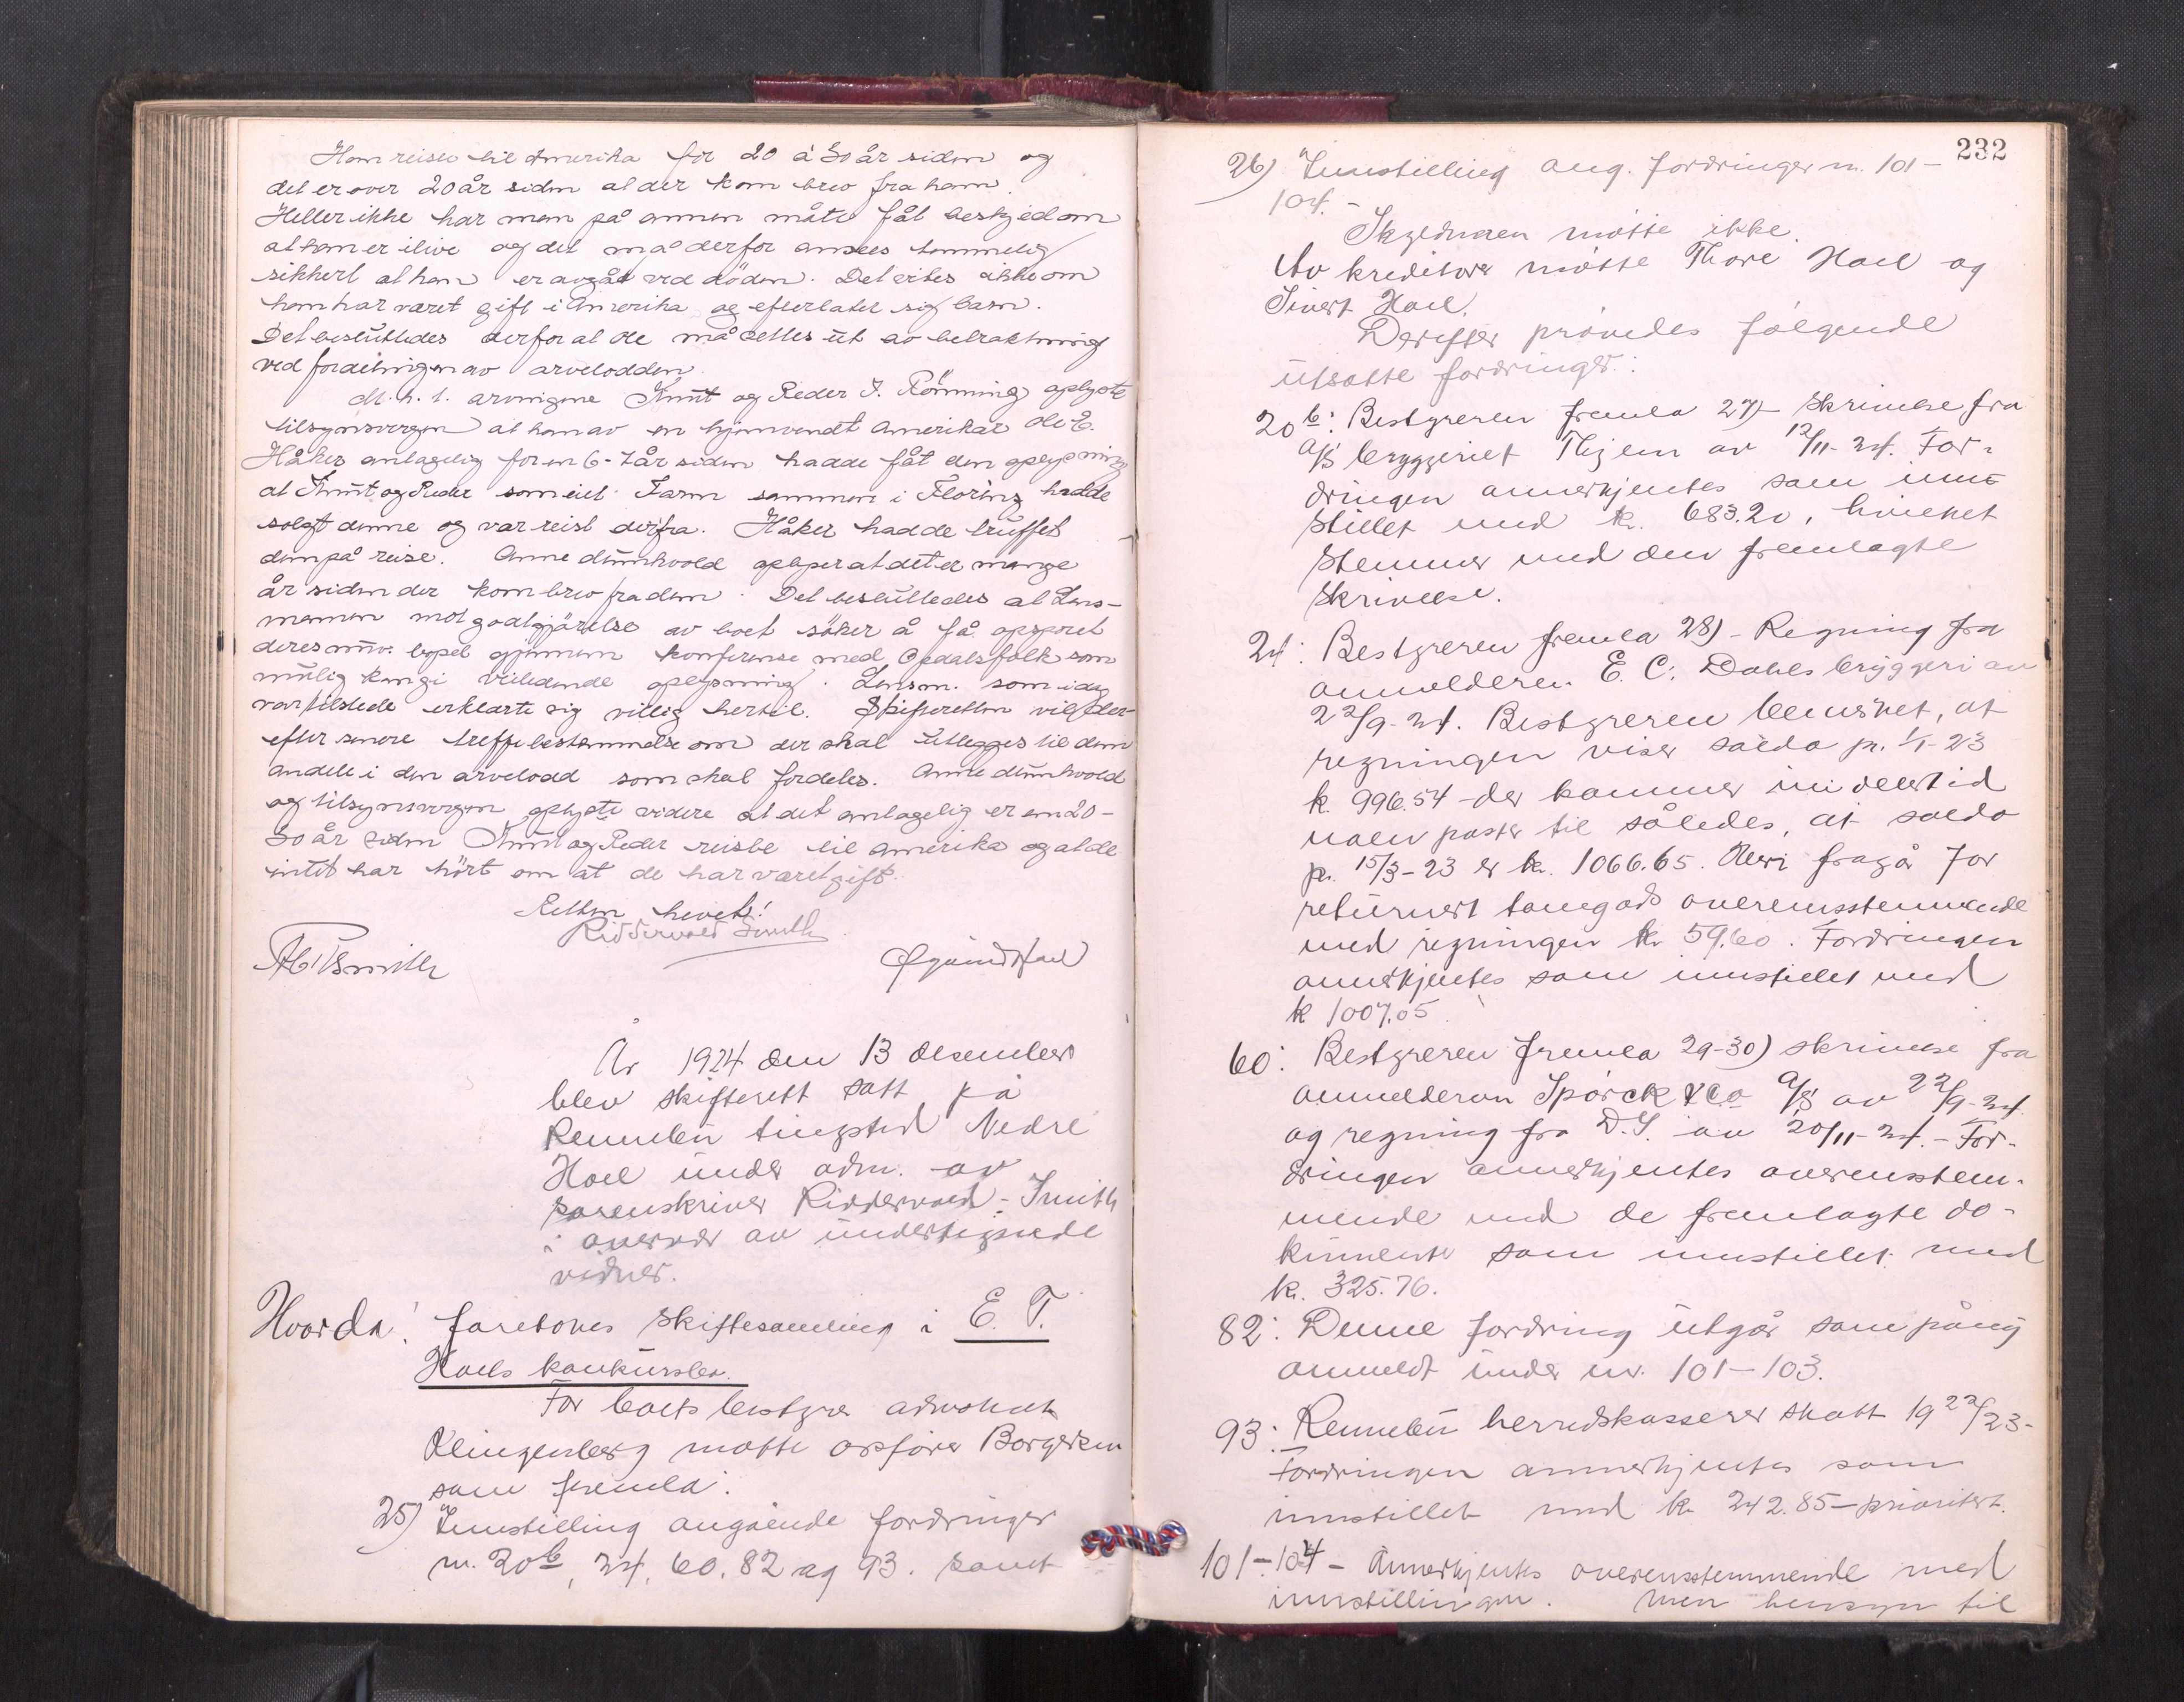 Han reiste til Amerika for 20 à 30 år siden og
det er over 20 år siden at der kom brev fra ham.
Heller ikke har man på annen måte fåt beskjed om
at han er ilive og det må derfor ansees temmelig
sikkert at han er avgåt ved döden. Det vites ikke om
han har været gift i Amerika og efterlatt sig barn.
Det besluttedes derfor at Ole må settes ut av betraktning
ved fordelingen av arvelodden.
M. h. t. arvingene Knut og Peder J. Rönning oplyste
tilsynsvergen at han av en hjemvendt Amerikar Ole E.
Håker antagelig for en 6-7 år siden hadde fåt den oplysning
at Knut og Peder som eiet Farm sammen i hadde
solgt denne og var reist derfra. Håker hadde truffet
dem på reise. Anne oplyser at det er mange
år siden der kom brev fra dem. Det besluttedes at Lens-
mannen mot godtgjörelse av boet söker å få opsporet
deres nuv. bopel gjennem konferense med Opdalsfolk som
mulig kan gi veiledende oplysning. Lensm. som idag
var tilstede erklærte sig villig hertil. Skifteretten vil der-
efter senere treffe bestemmelse om der skal utlegges til dem
andele i den arvelodd som skal fordeles. Anne
og tilsynsvergen oplyste videre at det antagelig er en 20-
30 år siden Knut og Peder reiste til Amerika og at de
intet har hört om at de har været gift.
Retten hevet!
Ridderwold Smith
År 1924 den 13 desember
blev skifterett satt på
Rennebu tingsted Nedre
Hoel under adm. av
sorenskriver Ridderwold-Smith
i overvær av undertegnede
vidner.
Hvorda: foretoges skiftesamling i E. T.
Hoels konkursbo.
For boets bestyrer advokat
Klingenberg møtte opfører Borgersen
som fremla:
25) Innstilling angående fordringer
nr. 20b, 24, 60, 82 og 93. samt
232
26) Innstilling ang. fordringer nr. 101-
104. -
Skyldneren møtte ikke.
Av kreditorer møtte Thore Hoel og
Sivert Hoel.
Derefter prøvedes følgende
utsatte fordringer:
20 b: Bestyreren fremla 27) Skrivelse fra
A/S bryggeriet Thjem av 12/11-24. For-
dringen annerkjentes som inn-
stillet med kr. 683.20, hvilket
stemmer med den fremlagte
skrivelse.
24: Bestyreren fremla 28) - Regning fra
anmelderen E. C. Dahls bryggeri av
22/9-24. Bestyreren bemerket, at
regningen viser saldo pr. 1/1-23
k. 996.54 - der kommer imidlertid
noen poster til således, at saldo
pr. 15/3-23 er kr. 1066.65. Heri fragår for
returnert tomgods overensstemmende
med regningen kr 59.60. Fordringen
annerkjentes som innstillet med
k 1007.05.
60: Bestyreren fremla 29-30) skrivelse fra
anmelderen Spörck & Co A/S av 22/9-24
og regning fra D.S. av 20/11-24. - For-
dringen annerkjentes overensstem-
mende med de fremlagte do-
kumenter som innstillet med
kr. 325.76.
82: Denne fordring utgår som påny
anmeldt under nr. 101-103.
93: Rennebu herredskasserer skatt 1922/23-
Fordringen annerkjentes som
innstillet med kr. 242.85 - prioritert.
101-104 - Annerkjentes overensstemmende med
innstillingen. Men hensyn til